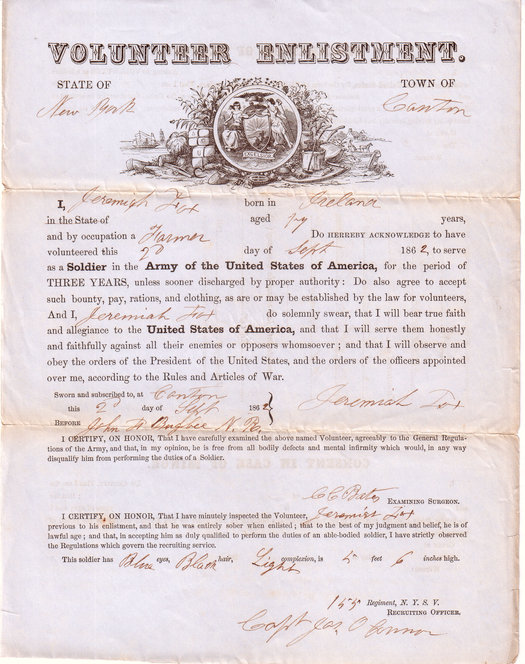 VOLUNTEER ENLISTMENT.
STATE OF TOWN OF
New York Canton
EXCELSIOR
I, Jeremiah Fox born in Ireland
in the State of aged years,
and by occupation a Farmer Do HEREBY ACKNOWLEDGE to have
volunteered this 2d day of Sept 1862, to serve
as a Soldier in the Army of the United States of America, for the period of
THREE YEARS, unless sooner discharged by proper authority: Do also agree to accept
such bounty, pay, rations, and clothing, as are or may be established by the law for volunteers,
And I, Jeremiah Fox do solemnly swear, that I will bear true faith
and allegiance to the United States of America, and that I will serve them honestly
and faithfully against all their enemies or opposers whomsoever; and that I will observe and
obey the orders of the President of the United States, and the orders of the officers appointed
over me, according to the Rules and Articles of War.
Sworn and subscribed to, at Canton
this 2d day of Sept 1862 } Jeremiah Fox
BEFORE John F.
I CERTIFY, ON HONOR, That I have carefully examined the above named Volunteer, agreeably to the General Regula-
tions of the Army, and that, in my opinion, he is free from all bodily defects and mental infirmity which would, in any way
disqualify him from performing the duties of a Soldier.
C C Bates EXAMINING SURGEON.
I CERTIFY, ON HONOR, That I have minutely inspected the Volunteer, Jeremiah Fox
previous to his enlistment, and that he was entirely sober when enlisted; that to the best of my judgment and belief, he is of
lawful age; and that, in accepting him as duly qualified to perform the duties of an able-bodied soldier, I have strictly observed
the Regulations which govern the recruiting service.
This soldier has Blue eyes, Black hair, Light complexion, is 5 feet 6 inches high.
155 Regiment, N. Y. S. V.
RECRUITING OFFICER.
Capt Jas O Connor